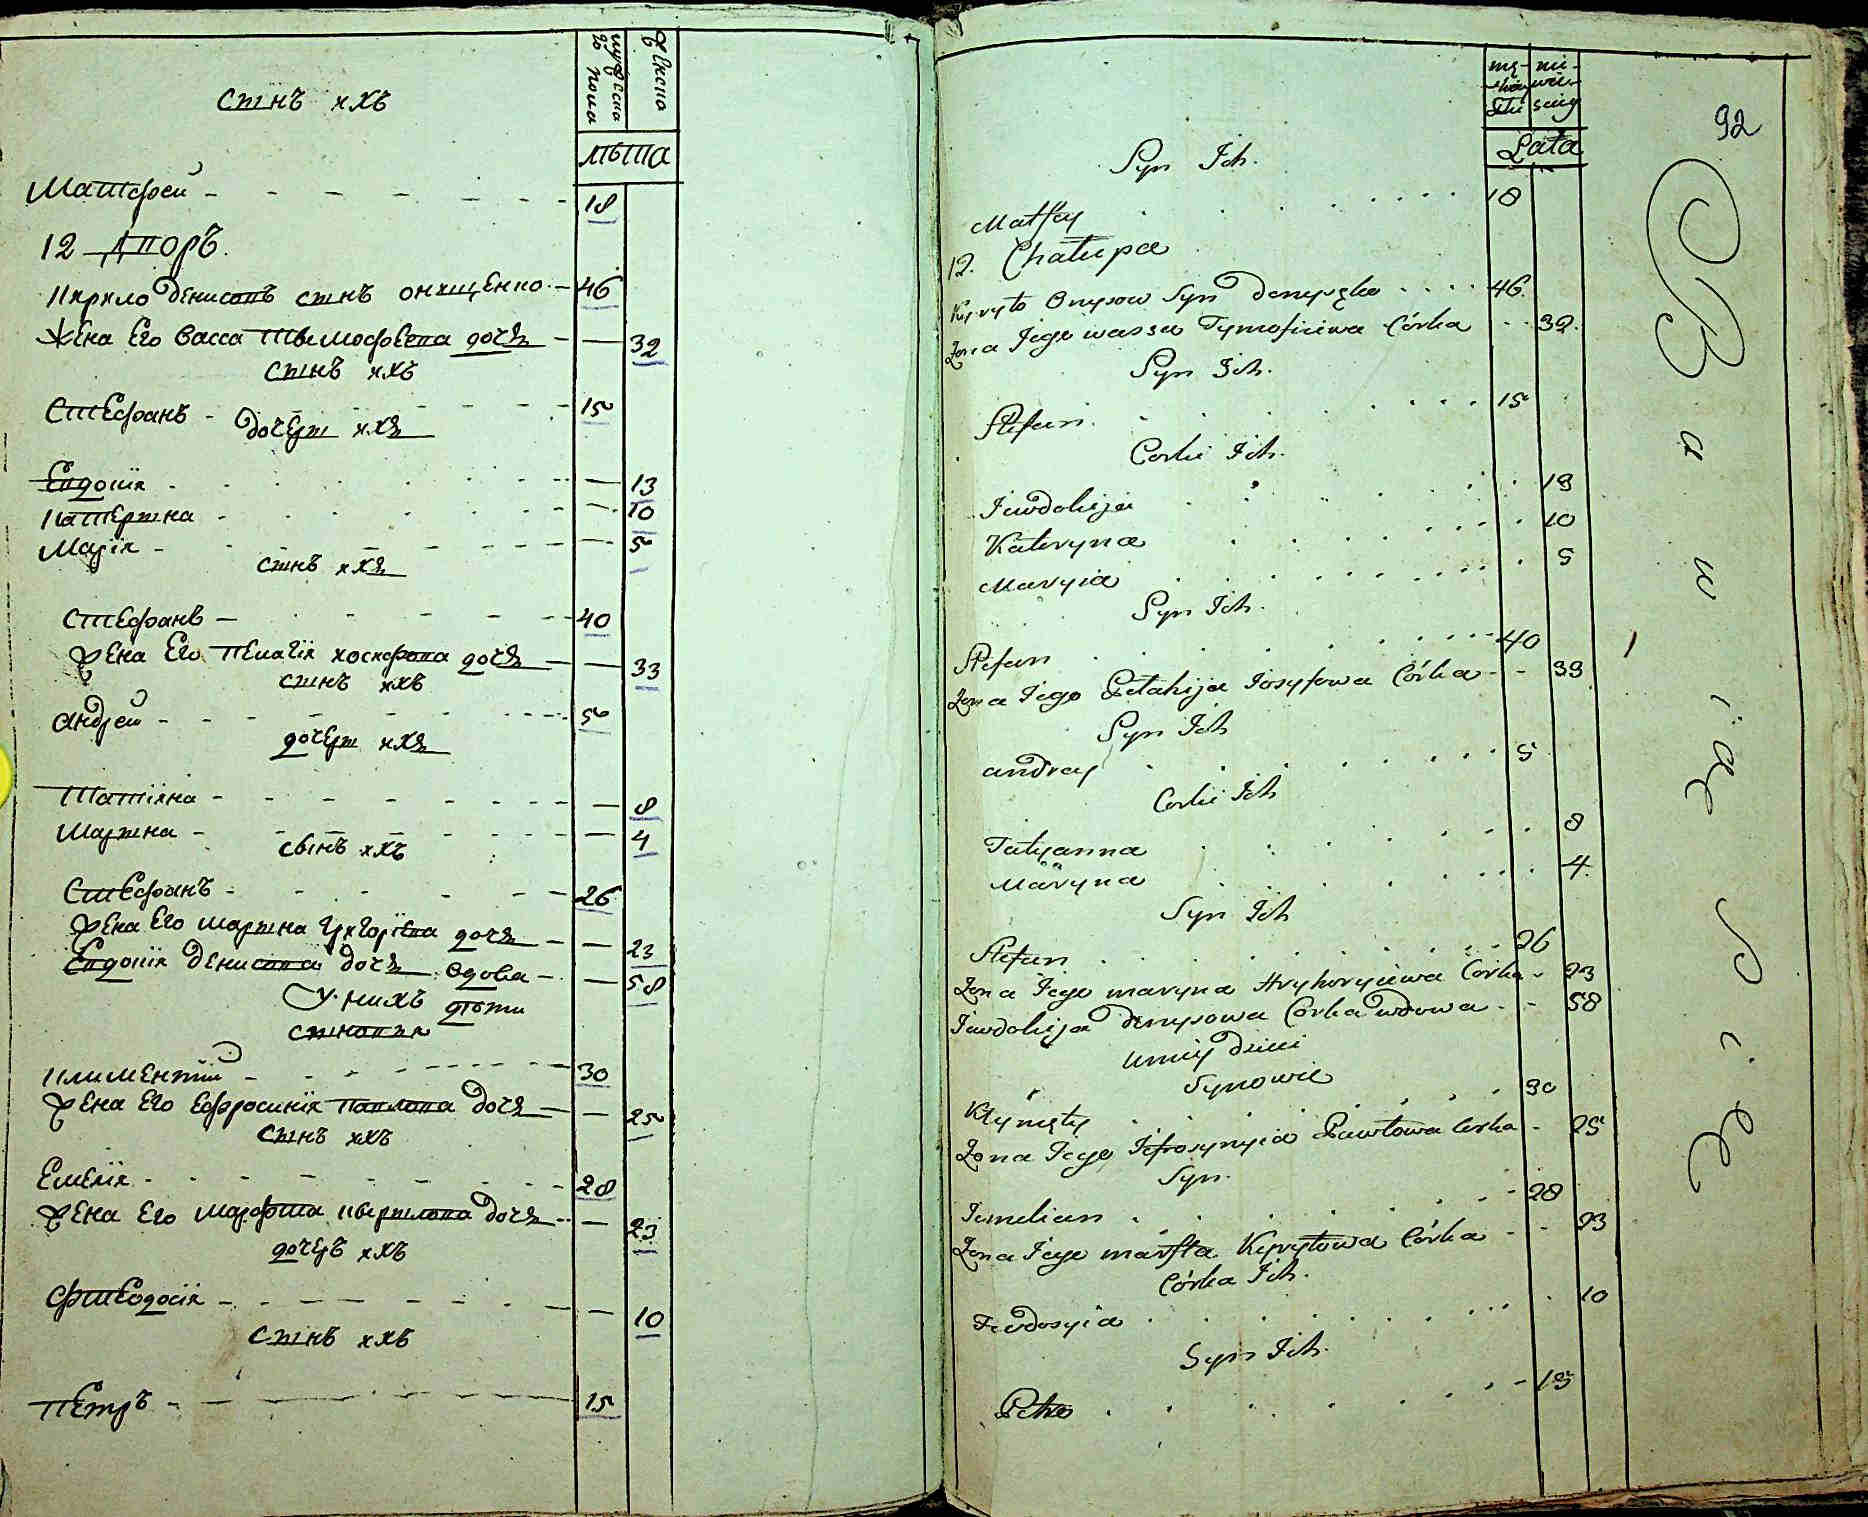 мужеска пола
женска
лѣта
сынъ ихъ
Матфей 18
12 дворъ.
Кирило Денисовъ сынъ Онищенко 46
Жена Его Васса Тымофѣева дочь 32
сынъ ихъ
Стефанъ 15
дочеры ихъ
Евдокия 13
Катерына 10
Мария 5
сынъ ихъ
Стефанъ 40
жена Его Пелагия Иосифова дочь 33
сынъ ихъ
Андрей 5
дочеры ихъ
Татияна 8
Марына 4
сынъ ихъ
Стефанъ 26
жена Его Марына Григориева дочь 23
Евдокия Денисова дочь вдова 58
У нихъ дѣти
сыновья
Климентий 30
жена Его Ефросиния Павлова дочь 25
сынъ ихъ
Емелия 28
жена Его Марфта Кырылова дочь 23
дочеръ ихъ
Фтеодосия 10
сынъ ихъ
Петръ 15
92
Lata
Syn Ich.
Matfey 18
12. Chałupa
Kyryło Onysow Syn Denyszko 46.
Zona Jego Wassa Tymofiiewa Córka 32.
Syn Ich.
Stefan 15
Corki Ich.
Jewdokija 13
Kateryna 10
Maryia 5
Syn Ich.
Stefan 40
Zona Jego Pelahija Josyfowa Córka 33
Syn Ich
Andrey 5
Corki Ich
Tatyanna 8
Maryna 4.
Syn Ich
Stefan 26
Zona Jego Maryna Hryhoryiewa Córka 23
Jewdokija Denysowa Corka wdowa 58
u niey dzieci
Synowie
Kłymęty 30
Zona Jego Jefrosynyia Pawłowa Corka 25
Syn.
Jemelian 28
Zona Jego Marfta Kyryłowa Córka 23
Córka Ich.
Fewdosyia 10
Syn Ich.
Petro 15